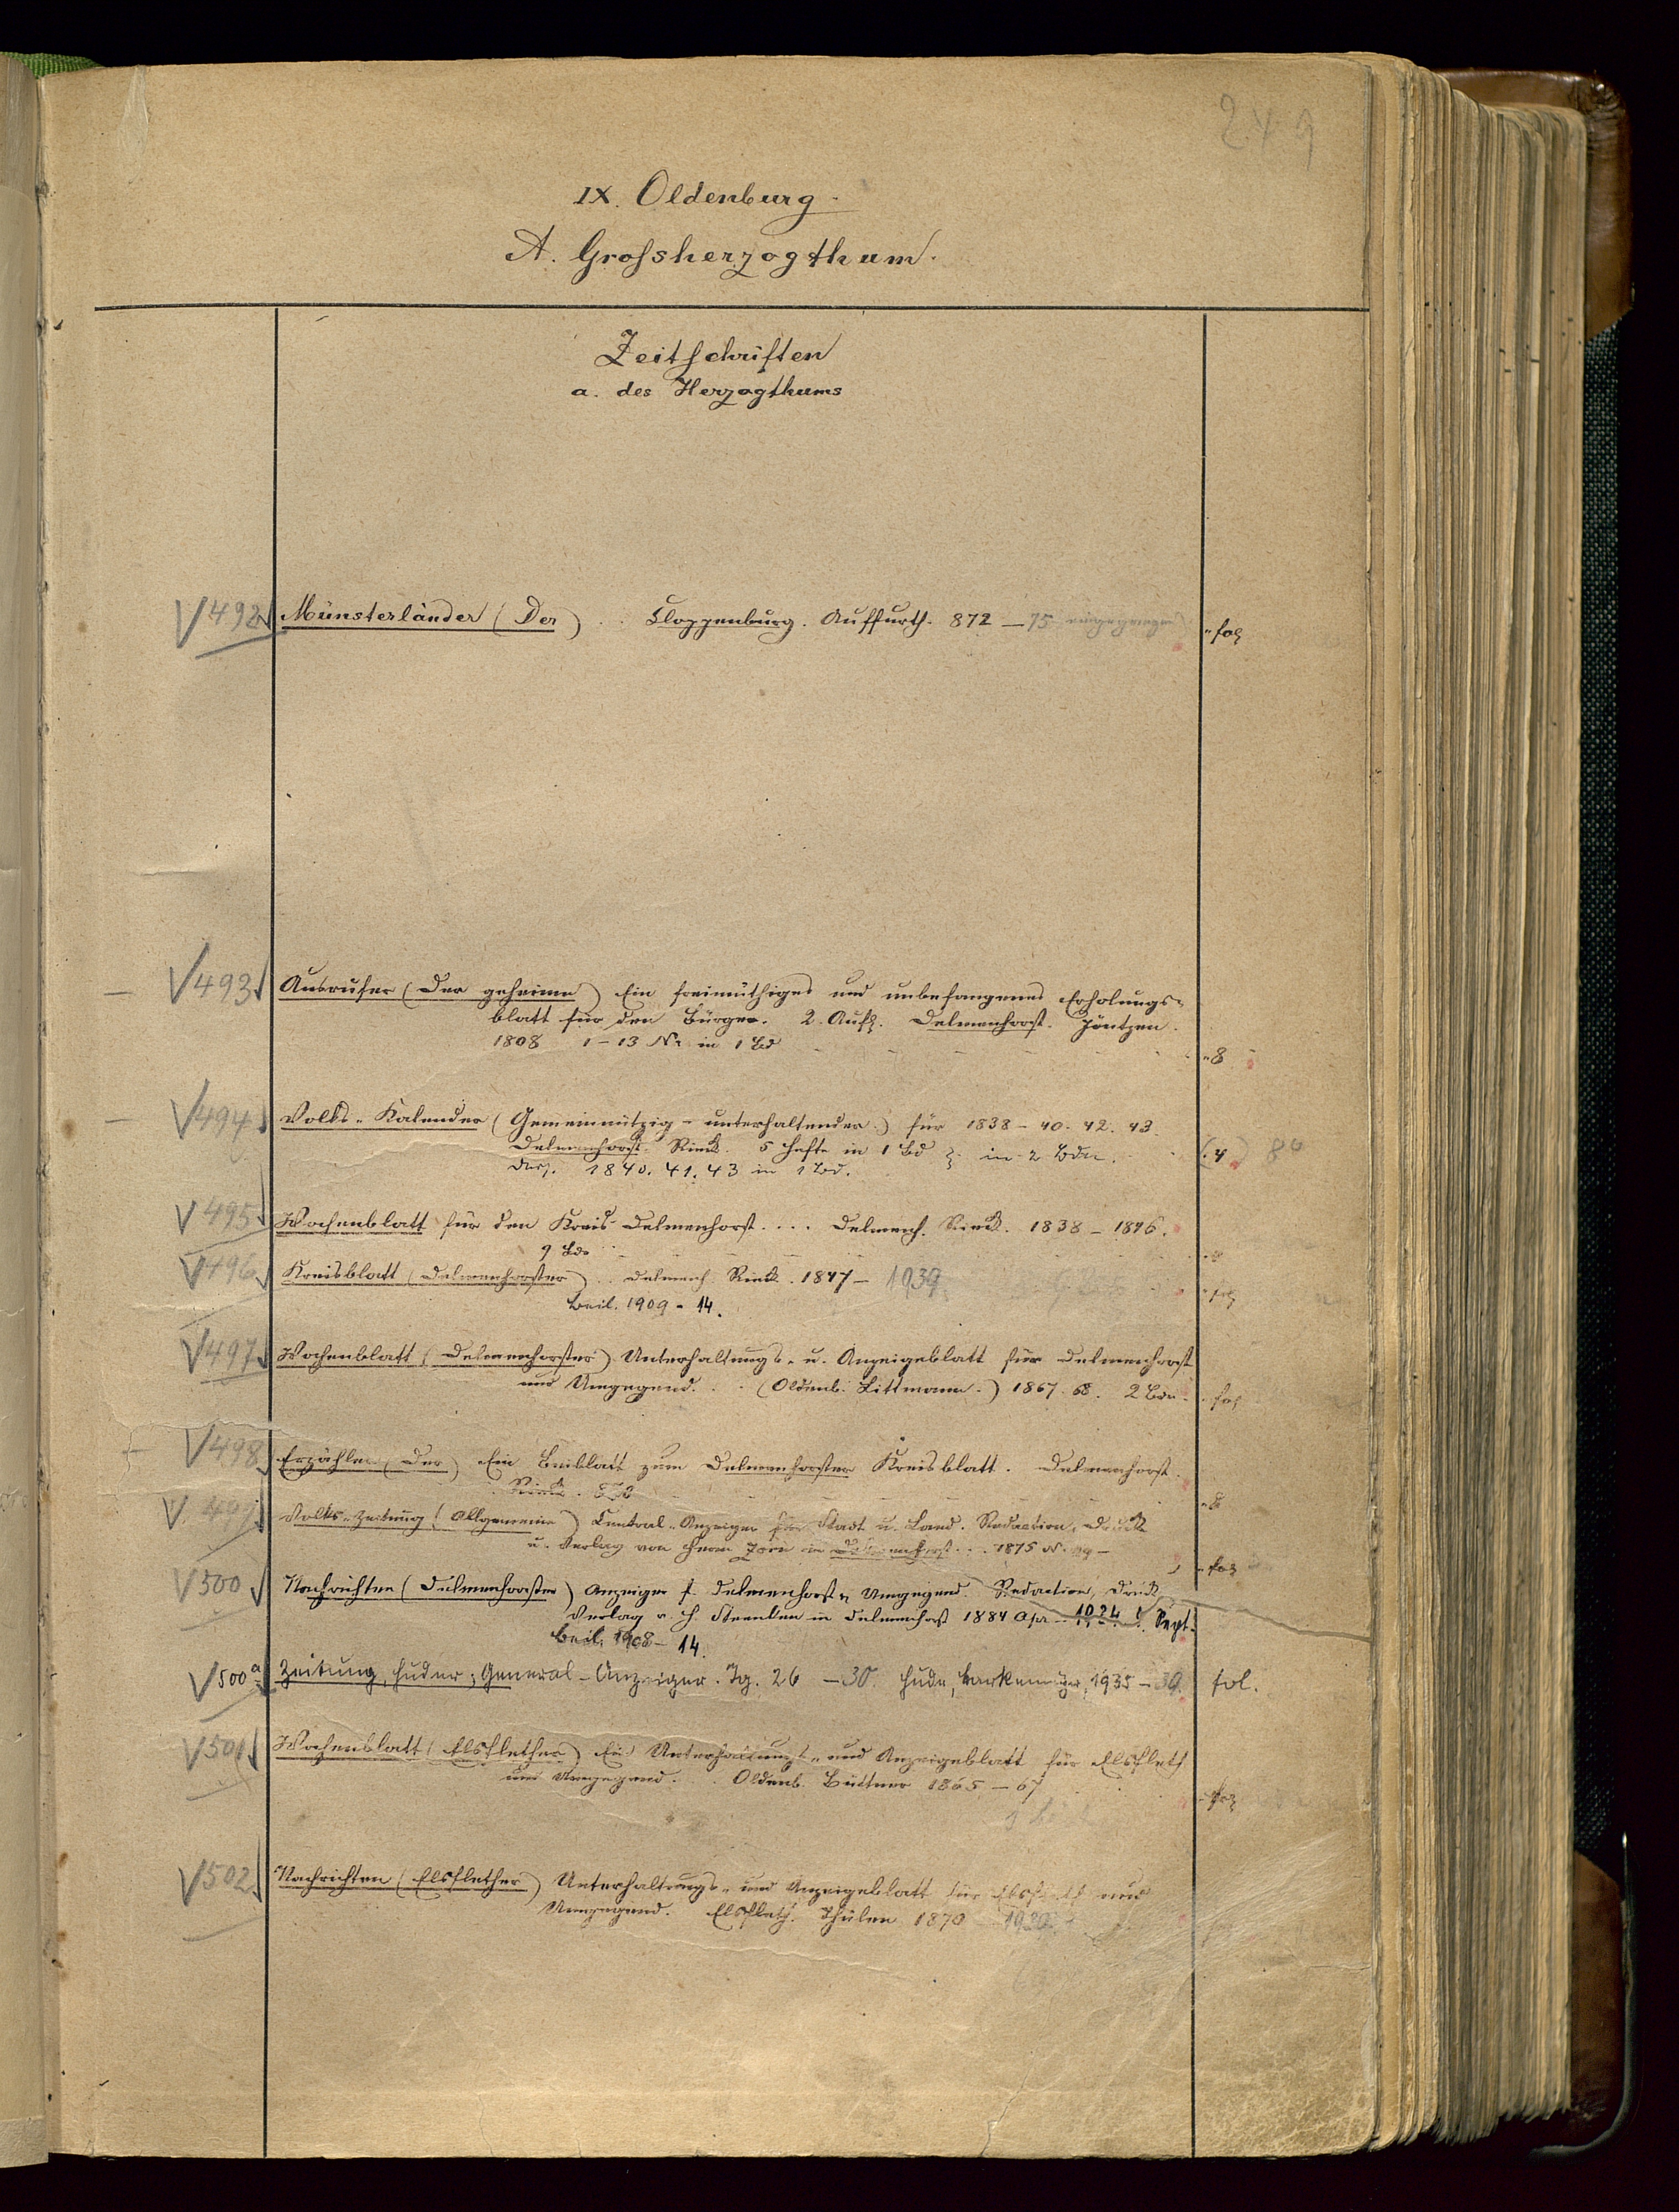 249
IX. Oldenburg.
A. Grossherzogthum.
Zeitschriften
a. des Herzogthums
V 492 Münsterländer (Der) . . Cloppenburg. Auffurth. 872 — 75 eingegangen "fol
— V 493 Ausrufer (Der geheime) Ein freimüthiges und unbefangenes Erholungs-
blatt für den Bürger. 2. Aufl. Delmenhorst. Jöntzen.
1808 1–13 Nr in 1 Bd "8
— V 494 Volks-Kalender (Gemeinnützig-unterhaltender) für 1838 – 40. 42. 43.
Delmenhorst. Rieck. 5 Hefte in 1 Bd in 2 Bdn. (4) 8°
Dass. 1840. 41. 43 in 1 Bd.
V 495 Wochenblatt für den Kreis Delmenhorst. . . . Delmenh. Rieck. 1838 – 1846.
9 Bde "8
V 496 Kreisblatt (Delmenhorster) . . Delmenh. Rieck. 1847 – 1939 "fol
Beil. 1909 - 14.
V 497 Wochenblatt (Delmenhorster) Unterhaltungs- u. Anzeigeblatt für Delmenhorst
und Umgegend. . . (Oldenb. Littmann.) 1867. 68. 2 Bde. "fol
V 498 Erzähler (Der) Ein Beiblatt zum Delmenhorster Kreisblatt. Delmenhorst.
Rieck. "8
V. 499 Volks-Zeitung (Allgemeine) Central-Anzeiger für Stadt u. Land. Redaction, Druck
u. Verlag von Herm in Delmenhorst . . 1875 N. – "fol
V 500 Nachrichten (Delmenhorster) Anzeiger f. Delmenhorst u Umgegend. Redaction, Druck
Verlag v. H. Steenken in Delmenhorst 1884 Apr – 1924 Sept.
Beil. 1908 – 14.
V 500a Zeitung, Huder; General-Anzeiger. Jg. 26 – 30. Hude, 1935 – 39. fol.
V 501 Wochenblatt (Elsflether) Ein Unterhaltungs- und Anzeigeblatt für Elsfleth
und Umgegend. . . Oldenb. Büttner 1865 – 67 "fol
V 502 Nachrichten (Elsflether) Unterhaltungs- und Anzeigeblatt für Elsfleth und
Umgegend. Elsfleth. Thülen 1870